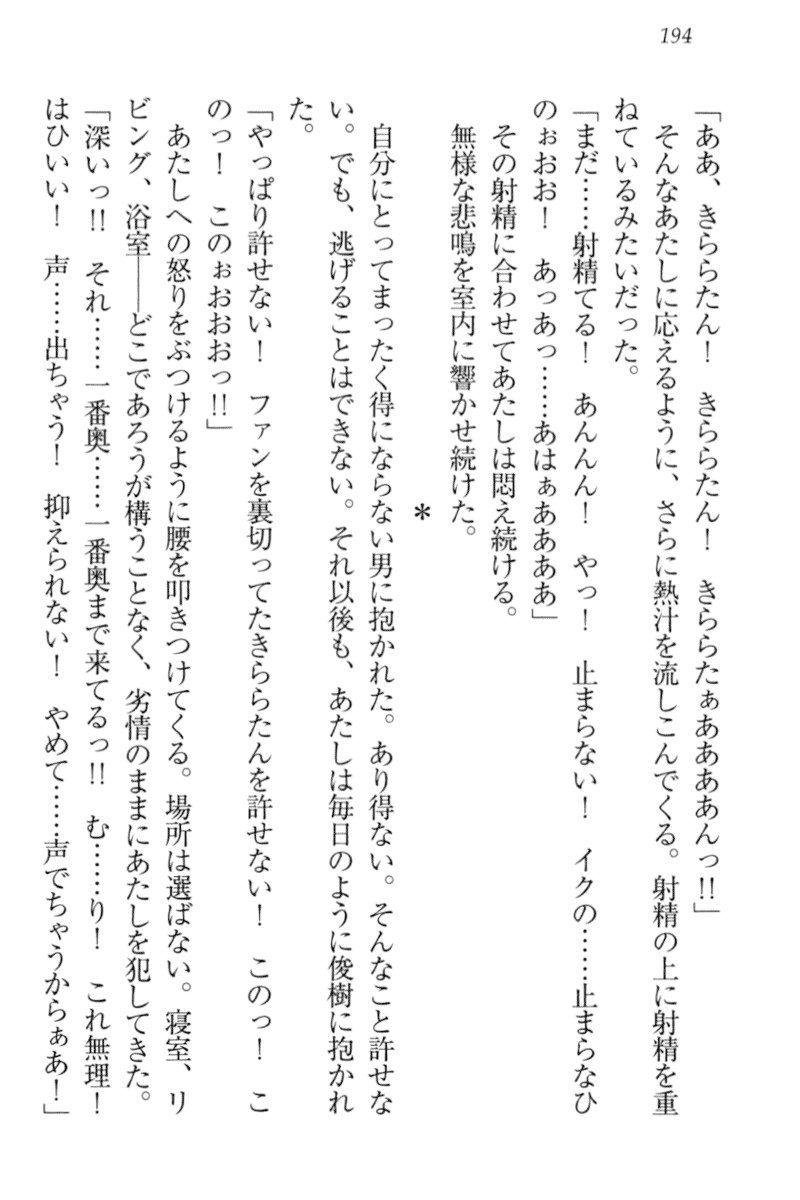 194
「ああ、きららたん！　きららたん！　きららたぁああああんっ!!」
　そんなあたしに応えるように、さらに熱汁を流しこんでくる。射精の上に射精を重
ねているみたいだった。
「まだ……射精てる！　あんんん！　やっ！　止まらない！　イクの……止まらなひ
のぉおお！　あっあっ……あはぁああああ」
　その射精に合わせてあたしは悶え続ける。
　無様な悲鳴を室内に響かせ続けた。
＊
　自分にとってまったく得にならない男に抱かれた。あり得ない。そんなこと許せな
い。でも、逃げることはできない。それ以後も、あたしは毎日のように俊樹に抱かれ
た。
「やっぱり許せない！　ファンを裏切ってたきららたんを許せない！　このっ！　こ
のっ！　このぉおおおっ!!」
　あたしへの怒りをぶつけるように腰を叩きつけてくる。場所は選ばない。寝室、リ
ビング、浴室――どこであろうが構うことなく、劣情のままにあたしを犯してきた。
「深いっ!!　それ……一番奥……一番奥まで来てるっ!!　む……り！　これ無理！
はひいい！　声……出ちゃう！　抑えられない！　やめて……声でちゃうからぁあ！」